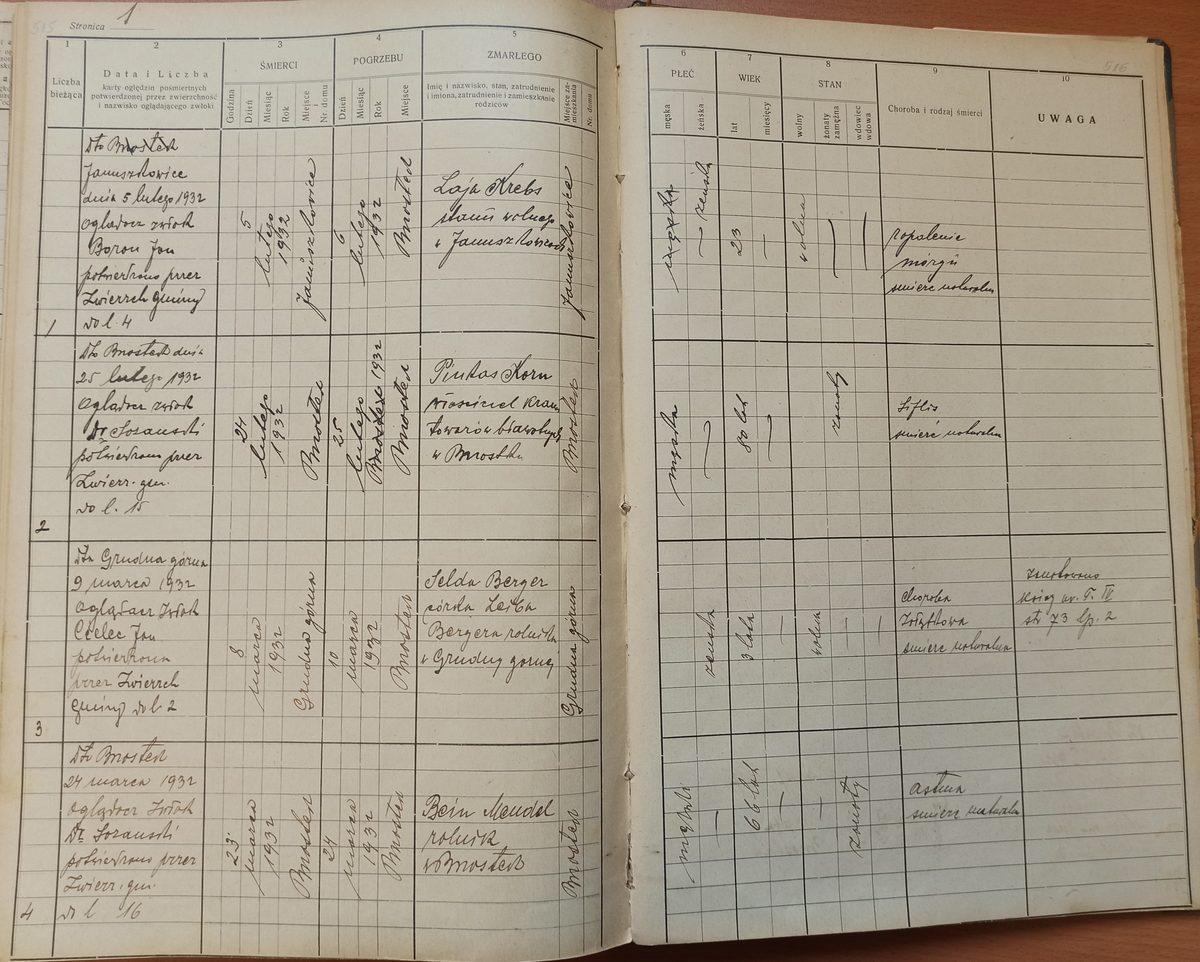 515
Stronica 1
1
2
3
4
5
Liczba bieżąca
Data i Liczba
karty oględzin pośmiertnych
potwierdzonej przez zwierzchność
i nazwisko oglądającego zwłoki
ŚMIERCI
Godzina
Dzień
Miesiąc
Rok
Miejsce i Nr. domu
POGRZEBU
Dzień
Miesiąc
Rok
Miejsce
ZMARŁEGO
Imię i nazwisko, stan, zatrudnienie
i imiona, zatrudnienie i zamieszkanie
rodziców
Miejsce zamieszkania
Nr. domu
516
6
7
8
9
10
PŁEĆ
męska
żeńska
WIEK
lat
miesięcy
STAN
wolny
żonaty zamężna
wdowiec wdowa
Choroba i rodzaj śmierci
UWAGA
1
Dto Brzostek
Januszkowice
dnia 5 lutego 1932
Oglądacz zwłok
Boroń Jan
potwierdzono przez
Zwierzch gminy
do l. 4
5
lutego
1932
Januszkowice
6
lutego
1932
Brzostek
Laja Krebs
stanu wolnego
w Januszkowicach
Januszkowice
męska
— żeńska
23
—
wolna
—
—
zapalenie
mózgu
śmierć naturalna
2
Dto Brzostek dnia
25 lutego 1932
Oglądacz zwłok
Dr Sozański
potwierdzono przez
Zwierz. gm.
do l. 15
24
lutego
1932
Brzostek
25
lutego
Brzostek 1932
Brzostek
Pinkas Korn
właściciel kramu
towarów bławatnych
w Brzostku
Brzostek
męska
—
80 lat
—
żonaty
Siflis
śmierć naturalna
3
Dto Grudna górna
9 marca 1932
Oglądacz Zwłok
Cielec Jan
potwierdzona
przez Zwierzch
Gminy do l. 2
8
marca
1932
Grudna górna
10
marca
1932
Brzostek
Selda Berger
córka Leiba
Bergera rolnika
w Grudny górnej
Grudna górna
żeńska
3 lata
—
wolna
—
—
Choroba
Zołądkowa
śmierć naturalna
zanotowano
księg ur. T. IV
str 73 lp. 2
4
Dto Brzostek
24 marca 1932
Oglądacz Zwłok
Dr Sozański
potwierdzono przez
Zwierz. gm.
do l 16
23
marca
1932
Brzostek
24
marca
1932
Brzostek
Bein Mendel
rolnik
w Brzostek
Brzostek
męski
—
66 lat
—
—
żonaty
astma
śmierć naturalna